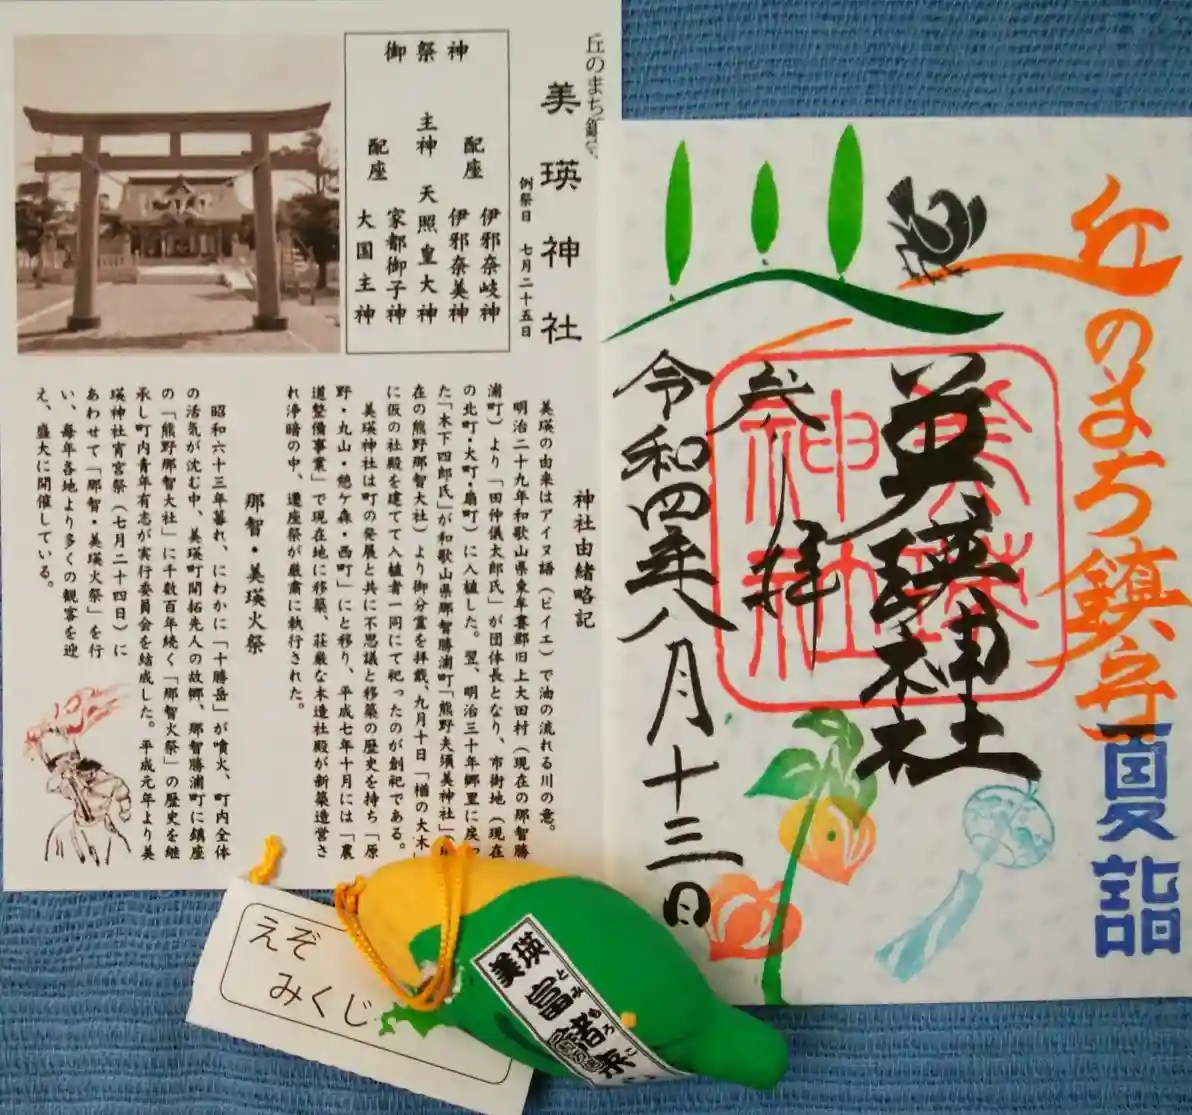 丘のまち鎮守
美瑛神社
例祭日 七月二十五日
御祭神
配座 伊邪奈岐神
伊邪奈美神
主神 天照皇大神
配座 家都御子神
大国主神
神社由緒略記
美瑛の由来はアイヌ語(ピイエ)で油の流れる川の意。
明治二十九年和歌山県東牟婁郡旧上大田村(現在の那智勝
浦町)より「田仲儀太郎氏」が団体長となり、市街地(現在
の北町・大町・扇町)に入植した。翌、明治三十年郷里に戻っ
た「木下四郎氏」が和歌山県那智勝浦町「熊野夫須美神社」
在の熊野那智大社)より御分霊を拝戴、九月十日「楢の大木」
に仮の社殿を建てて入植者一同にて祀ったのが創祀である。
美瑛神社は町の発展と共に不思議と移築の歴史を持ち「原
野・丸山・憩ケ森・西町」にと移り、平成七年十月には「農
道整備事業」で現在地に移築、荘厳な木造社殿が新築造営さ
れ浄暗の中、遷座祭が厳粛に執行された。
那智・美瑛火祭
昭和六十三年暮れ、にわかに「十勝岳」が噴火、町内全体
の活気が沈む中、美瑛町開拓先人の故郷、那智勝浦町に鎮座
の「熊野那智大社」に千数百年続く「那智火祭」の歴史を継
承し町内青年有志が実行委員会を結成した。平成元年より美
瑛神社宵宮祭(七月二十四日)に
あわせて「那智・美瑛火祭」を行
い、毎年各地より多くの観客を迎
え、盛大に開催している。
丘のまち鎮守
夏詣
美瑛神社
美瑛神社
奉拝
令和四年八月十三日
えぞ
みくじ
美瑛
富諸来